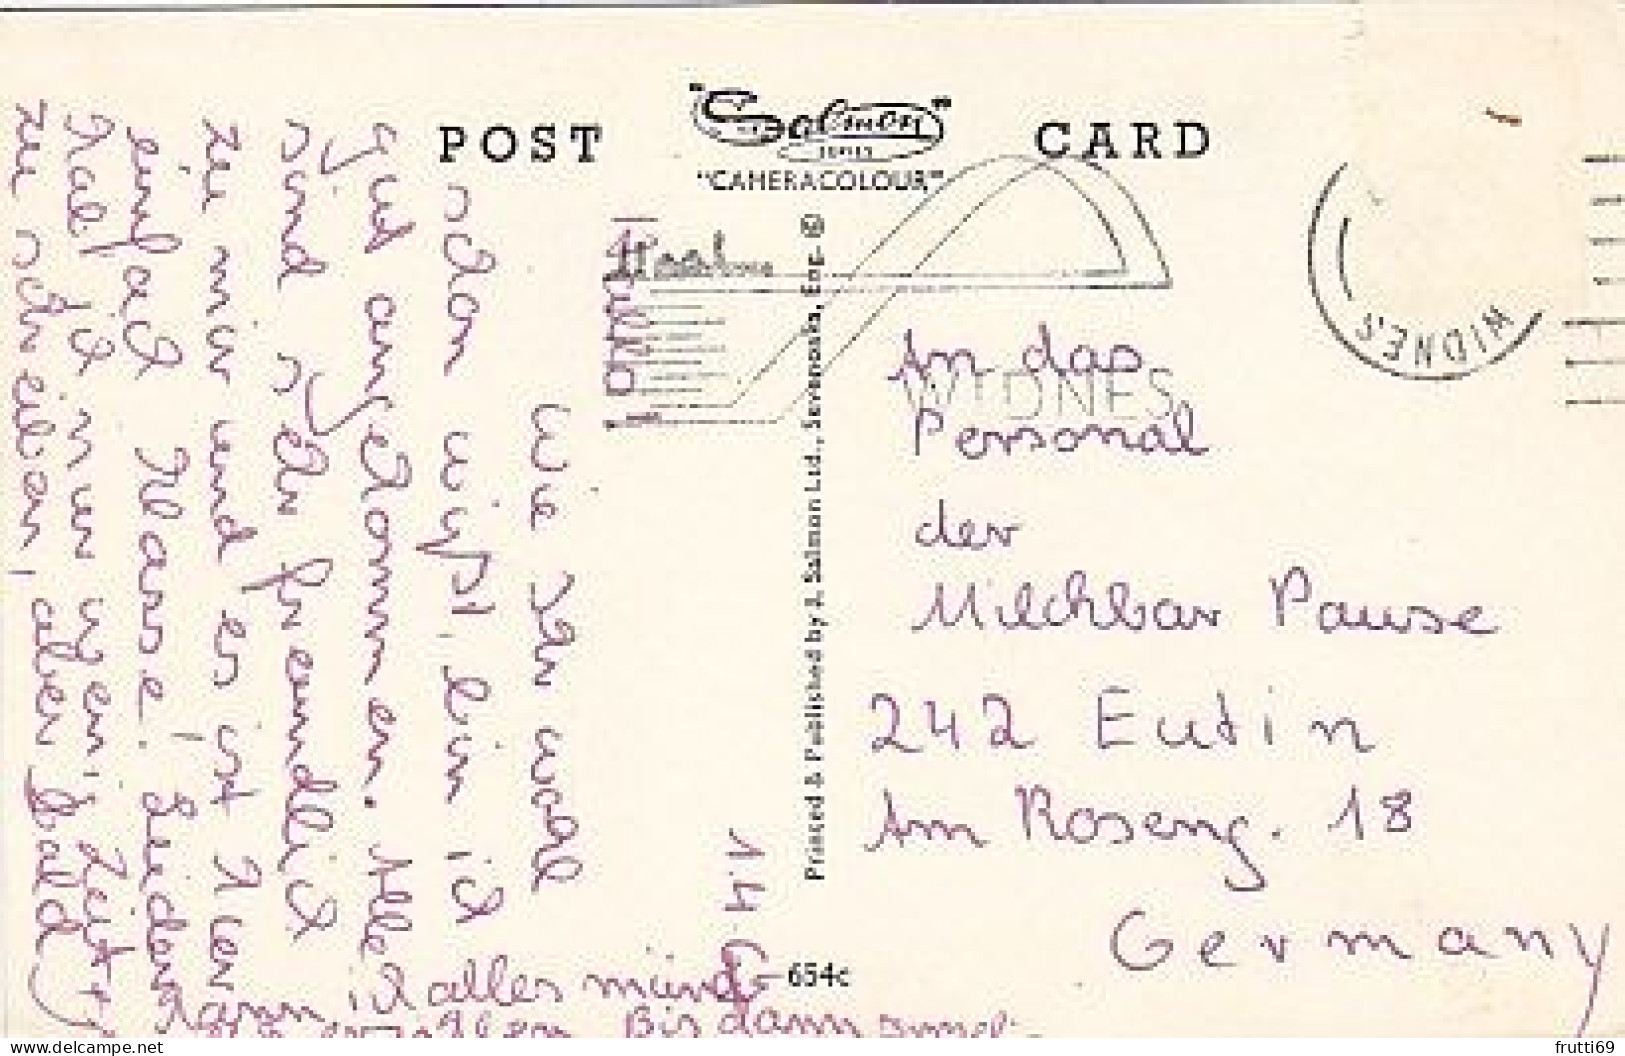 POST
"Salmon"
SERIES
"CAMERACOLOUR"
CARD
WIDNES
WIDNES
Printed & Published by J. Salmon Ltd., Sevenoaks, Eng. ©
654c
An das
Personal
der
Milchbar Pause
242 Eutin
Am Roseng. 18
Germany
1.4.
Hallo
Wie Ihr wohl
schon wißt, bin ich
gut angekommen. Alle
sind sehr freundlich
zu mir und es ist hier
einfach Klasse! Leider
hab' ich nur wenig Zeit
zu schreiben, aber bald
kann ich alles münd-
erzählen. Bis dann
frutti69
www.delcampe.net